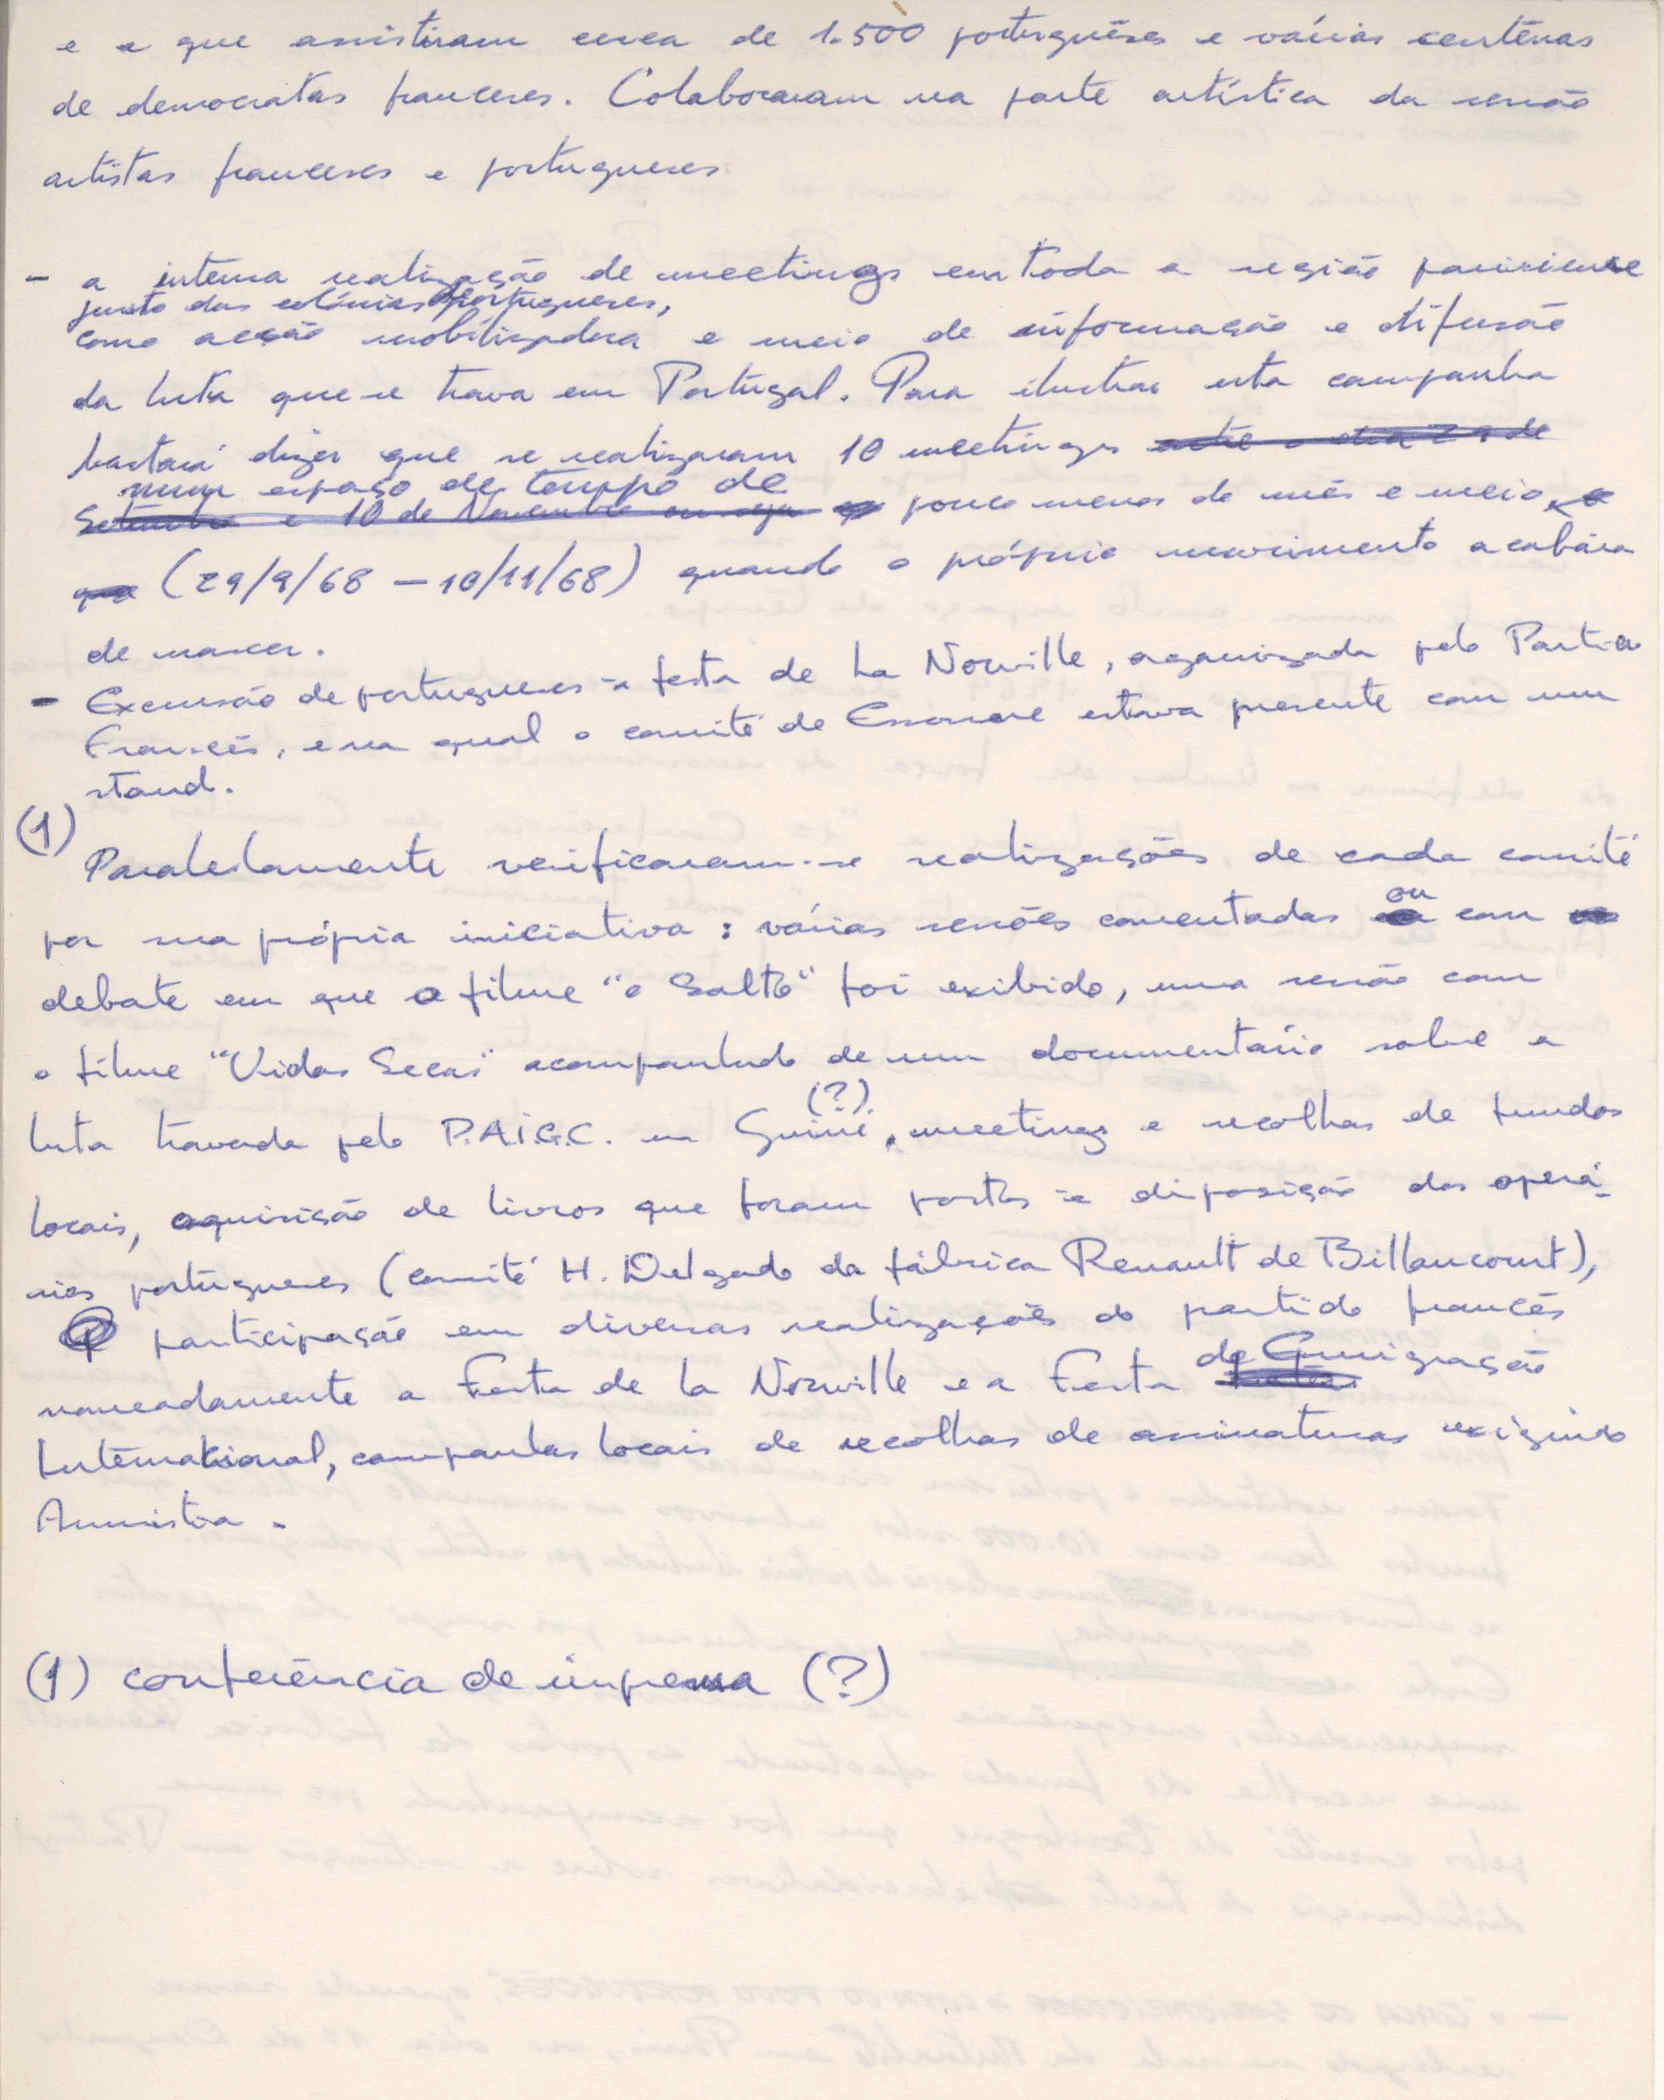 e a que assistiram cerca de 1.500 portuguêses e várias centênas
de democratas franceses. Colaboraram na parte artística da sessão
artistas franceses e portugueses
- a intensa realização de meetings em toda a região parisiense
junto das colónias portugueses,
como acção mobilizadora e meio de informação e difusão
da luta que se trava em Portugal. Para ilustrar esta campanha
bastará dizer que se realizaram 10 meetings entre o dia 29 de
num espaço de tempo de
Setembro e 10 de Novembro ou seja pouco menos de mês e meio,
(29/9/68 – 10/11/68) quando o próprio movimento acabára
de nascer.
- Excursão de portugueses à festa de La Norville, organizada pelo Partido
Francês, e na qual o comité de Essonne estava presente com um
stand.
(1)
Paralelamente verificaram-se realizações de cada comité
por sua própria iniciativa: várias sessões comentadas ou com
debate em que o filme "o Salto" foi exibido, uma sessão com
o filme "Vidas Secas" acompanhado de um documentário sobre a
luta travada pelo P.A.I.G.C. na Guiné (?), meetings e recolhas de fundos
locais, aquisição de livros que foram postos à disposição dos operá-
rios portugueses (comité H. Delgado da fábrica Renault de Billancourt),
participação em diversas realizações do partido francês
nomeadamente a Festa de la Norville e a Festa da Emigração
Internacional, campanhas locais de recolhas de assinaturas exigindo
Amnistia.
(1) conferência de imprensa (?)